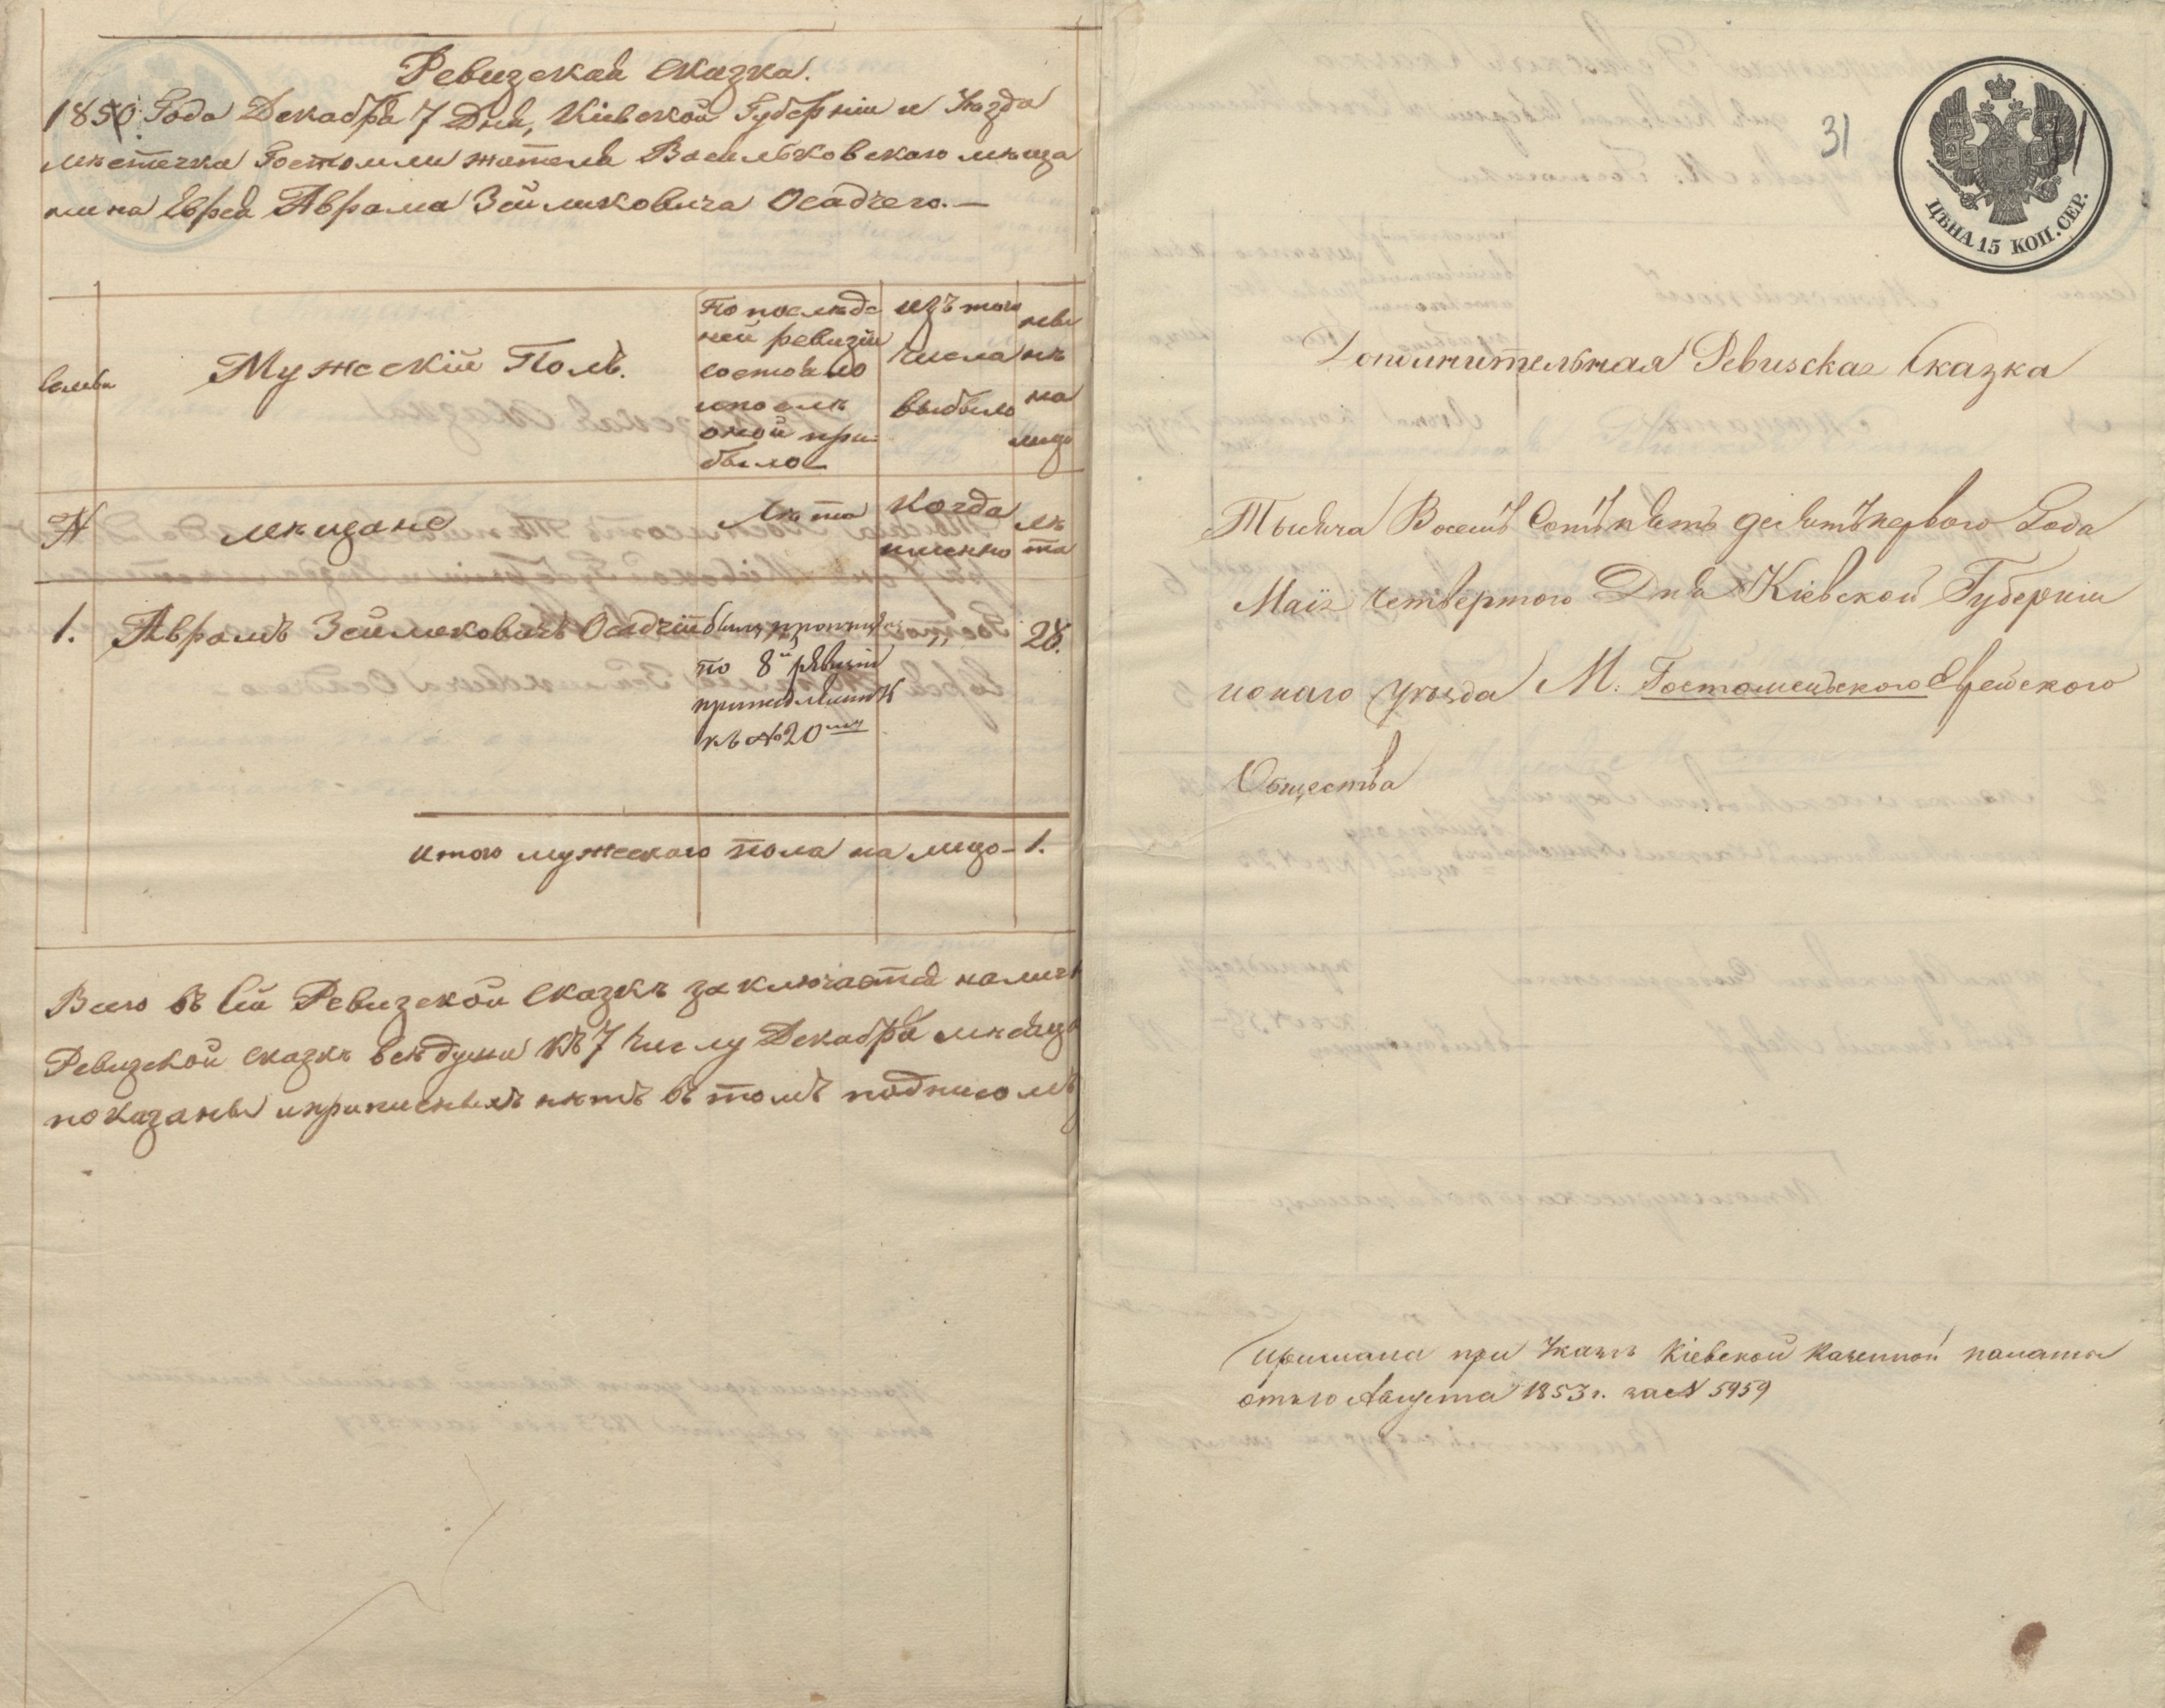 Ревизская Сказка.
1850 Года Декабря 7 Дня, Кіевской Губерніи и Уезда
мѣстечка Гостомли жителя Васильковского мѣща
нина Еврея Аврама Зеймиковича Осадчего. —
Семьи
Мужескій Полъ.
По последѣ
ней ревизіи
состояло
и послѣ
оной при-
было
изъ того
числа
выбыло
ныне
на
лицо
N
мѣщане
Лѣта
Когда
именно
лѣ
та
1.
Аврамъ Зеймековичъ Осадчій
былъ пропущенъ
по 8й ревизіи
къ № 20му
„
28.
итого мужескаго пола на лицо – 1.
Всего въ сей Ревизской Сказкѣ заключается налич
Ревизской сказкѣ всѣ души къ 7 Числу Декабря мѣсяца
показаны и прописныхъ нѣтъ въ томъ подписомъ
31
ЦѢНА 15 КОП. СЕР.
Дополнительная Ревизская Сказка
Тысяча Восемъ Сотъ пѣтъ десятъ первого Года
Маія четвертого Дня Кіевской Губерніи
и онаго уѣзда М. Гостомельского Еврейского
Общества
Прислана при Указѣ Кіевской Казенной палаты
отъ 10 Августа 1853 г. за N 5959